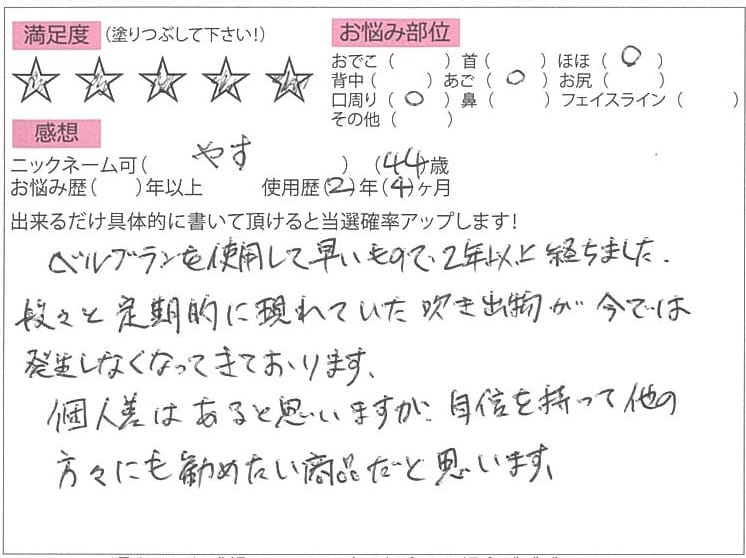 満足度 (塗りつぶして下さい!)
お悩み部位
おでこ ( ) 首 ( ) ほほ ( ○ )
背中 ( ) あご ( ○ ) お尻 ( )
口周り ( ○ ) 鼻 ( ) フェイスライン ( )
その他 ( )
感想
ニックネーム可( やす ) (44歳
お悩み歴( )年以上 使用歴(2)年(4)ヶ月
出来るだけ具体的に書いて頂けると当選確率アップします!
ベルブランを使用して早いもので、2年以上経ちました.
段々と定期的に現れていた吹き出物が今では
発生しなくなってきております、
個人差はあると思いますが、自信を持って他の
方々にも勧めたい商品だと思います、